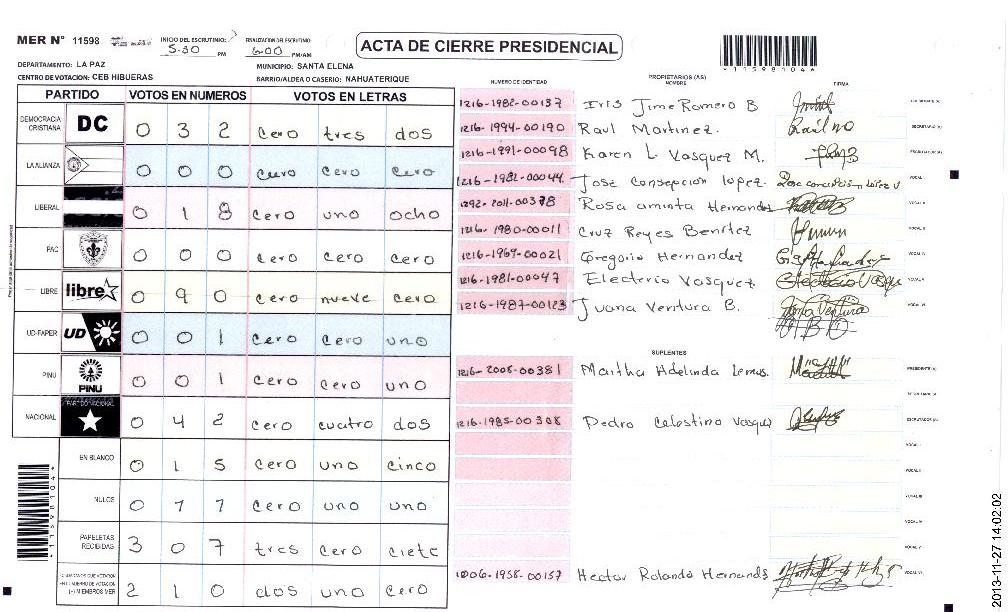 MER N° 11598
INICIO DEL ESCRUTINIO: 5:30 PM
FINALIZACION DEL ESCRUTINIO: 6:00 PM/AM
ACTA DE CIERRE PRESIDENCIAL
*11598104*
DEPARTAMENTO: LA PAZ
MUNICIPIO: SANTA ELENA
CENTRO DE VOTACION: CEB HIBUERAS
BARRIO/ALDEA O CASERIO: NAHUATERIQUE
PARTIDO VOTOS EN NUMEROS VOTOS EN LETRAS
DEMOCRACIA CRISTIANA DC 0 3 2 cero tres dos
LA ALIANZA 0 0 0 cero cero cero
LIBERAL 0 1 8 cero uno ocho
PAC 0 0 0 cero cero cero
LIBRE libre 0 9 0 cero nueve cero
UD-FAPER UD 0 0 1 cero cero uno
PINU PINU 0 0 1 cero cero uno
NACIONAL PARTIDO NACIONAL 0 4 2 cero cuatro dos
EN BLANCO 0 1 5 cero uno cinco
NULOS 0 1 1 cero uno uno
PAPELETAS RECIBIDAS 3 0 7 tres cero ciete
CIUDADANOS QUE VOTARON EN CUADERNO DE VOTACION (+) MIEMBROS MER 2 1 0 dos uno cero
NUMERO DE IDENTIDAD PROPIETARIOS (AS) NOMBRE FIRMA
1216-1982-00137 Iris Jime Romero B
1216-1994-00190 Raul Martinez. SECRETARIO (A)
1216-1991-00098 Karen L. Vasquez M. ESCRUTADOR (A)
1216-1982-00044 Jose Consepcion lopez. VOCAL I
1292-2011-00378 Rosa aminta Hernandez VOCAL II
1216-1980-00011 Cruz Reyes Benitez VOCAL III
1216-1969-00021 Gregorio Hernandez VOCAL IV
1216-1981-00047 Electerio Vasquez VOCAL V
1216-1987-00123 Juana Ventura B. VOCAL VI
SUPLENTES
1216-2008-00381 Martha Adelinda Lemus. PRESIDENTE (A)
SECRETARIO (A)
1216-1985-00308 Pedro Celestino Vasquez ESCRUTADOR (A)
VOCAL I
VOCAL II
VOCAL III
VOCAL IV
VOCAL V
1006-1958-00157 Hector Rolando Hernands VOCAL VI
*11598104*
2013-11-27 14:02:02